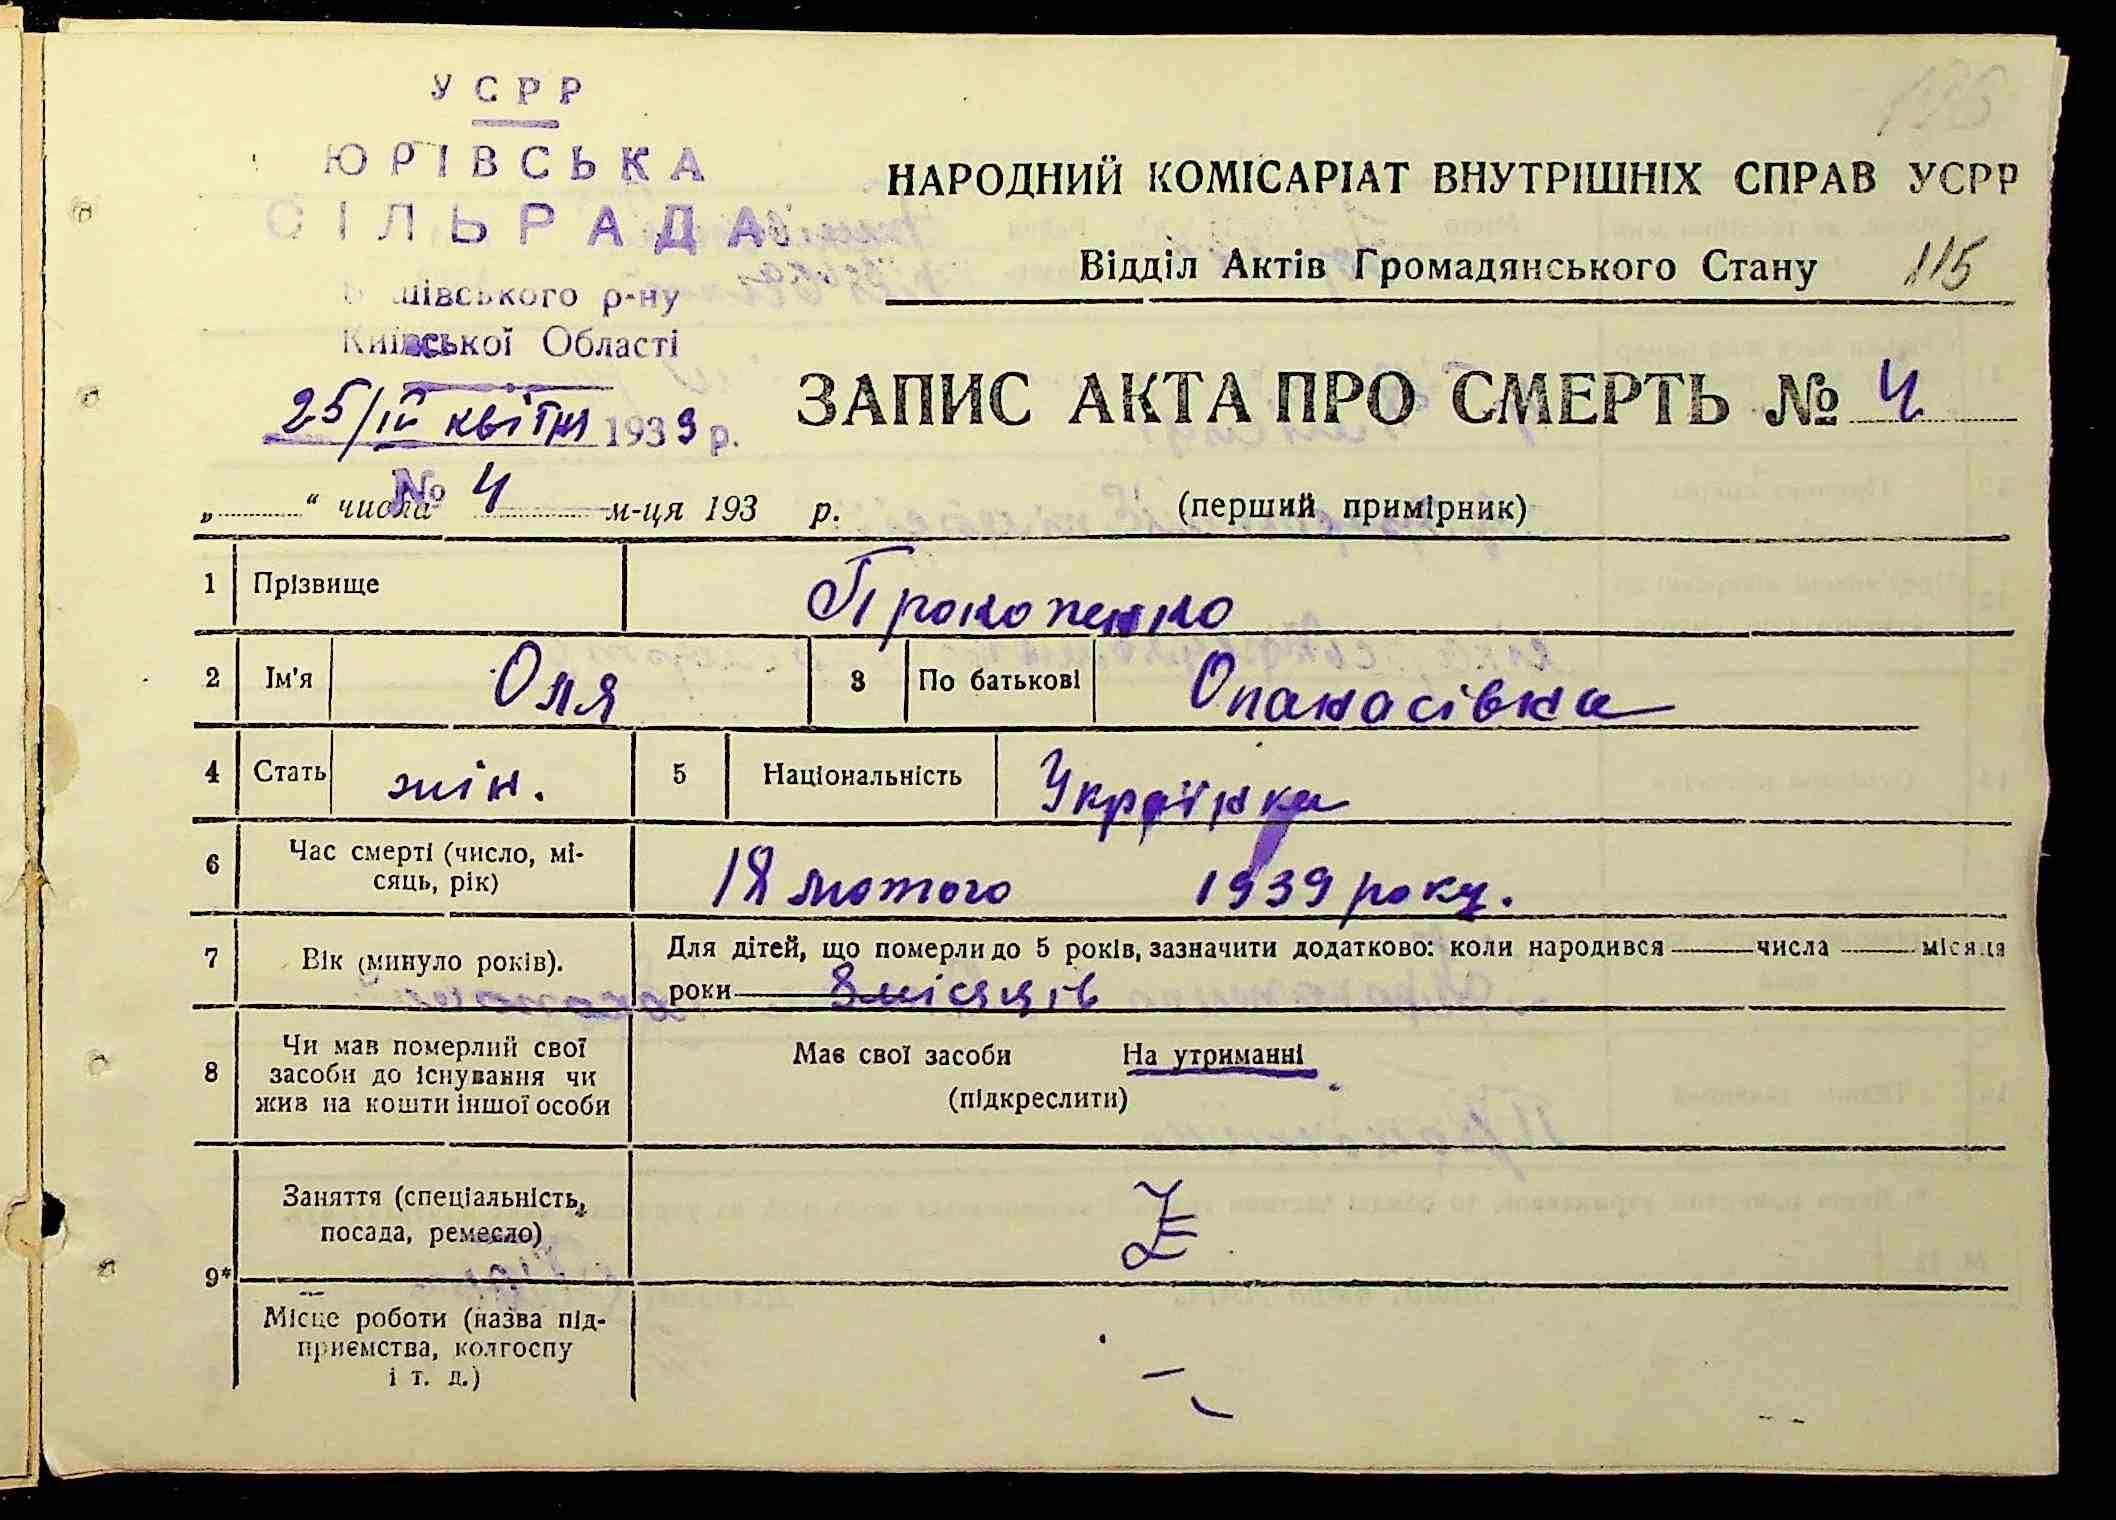 УСРР
ЮРІВСЬКА
СІЛЬРАДА
Київської Області
25/IV квітня 1939 р.
№ 4
115
НАРОДНИЙ КОМІСАРІАТ ВНУТРІШНІХ СПРАВ УСРР
Відділ Актів Громадянського Стану
ЗАПИС АКТА ПРО СМЕРТЬ № 4
„ “ числа м-ця 193 р.
(перший примірник)
1 Прізвище Прокопенко
2 Ім'я Оля 3 По батькові Опанасівна
4 Стать жін. 5 Національність Українка
6 Час смерті (число, мі-
сяць, рік) 18 лютого 1939 року.
7 Вік (минуло років). Для дітей, що померли до 5 років, зазначити додатково: коли народився числа місяця
роки 8 місяців
8 Чи мав померлий свої
засоби до існування чи
жив на кошти іншої особи
Має свої засоби На утриманні
(підкреслити)
9* Заняття (спеціальність,
посада, ремесло)
Місце роботи (назва під-
приємства, колгоспу
і т. д.)